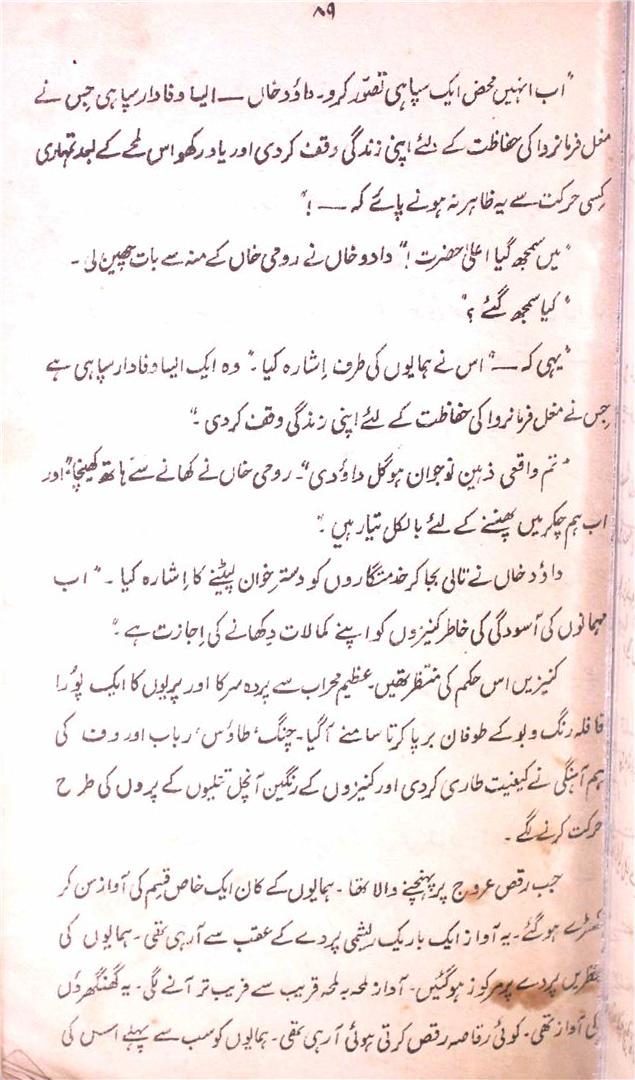 ۸۹
"اب انہیں محض ایک سپاہی تصوّر کرو۔ داؤد خاں — ایسا وفادار سپاہی جس نے
مغل فرمانروا کی حفاظت کے لئے اپنی زندگی وقف کر دی اور یاد رکھو اس لمحے کے بعد تمہاری
کسی حرکت سے یہ ظاہر نہ ہونے پائے کہ — !"
"میں سمجھ گیا اعلیٰ حضرت !" داود خاں نے رومی خاں کے منہ سے بات چھین لی۔
"کیا سمجھ گئے ؟"
"یہی کہ —" اس نے ہمایوں کی طرف اِشارہ کیا۔ "وہ ایک ایسا وفادار سپاہی ہے
جس نے مغل فرمانروا کی حفاظت کے لئے اپنی زندگی وقف کر دی۔"
"تم واقعی ذہین نوجوان ہو گل داؤدی"۔ رومی خاں نے کھانے سے ہاتھ کھینچا "اور
اب ہم چکر میں پھنسنے کے لئے بالکل تیار ہیں۔"
داؤد خاں نے تالی بجا کر خدمتگاروں کو دسترخوان لپیٹنے کا اِشارہ کیا۔ "اب
مہمانوں کی آسودگی کی خاطر کنیزوں کو اپنے کمالات دِکھانے کی اِجازت ہے۔"
کنیزیں اس حکم کی منتظر تھیں۔ عظیم محراب سے پردہ سرکا اور پریوں کا ایک پوُرا
قافلہ رنگ و بو کے طوفان برپا کرتا سامنے آگیا۔ چنگ، طاؤس، رباب اور دف کی
ہم آہنگی نے کیفیت طاری کر دی اور کنیزوں کے رنگین آنچل تتلیوں کے پروں کی طرح
حرکت کرنے لگے۔
جب رقص عروج پر پہنچنے والا تھا۔ ہمایوں کے کان ایک خاص قِسم کی آواز سن کر
کھڑے ہو گئے۔ یہ آواز ایک باریک ریشمی پردے کے عقب سے آرہی تھی۔ ہمایوں کی
نظریں پردے پر مرکوز ہو گئیں۔ آواز لمحہ بہ لمحہ قریب سے قریب تر آنے لگی۔ یہ گھنگھروُں
کی آواز تھی۔ کوئی رقاصہ رقص کرتی ہوئی آرہی تھی۔ ہمایوں کو سب سے پہلے اس کی